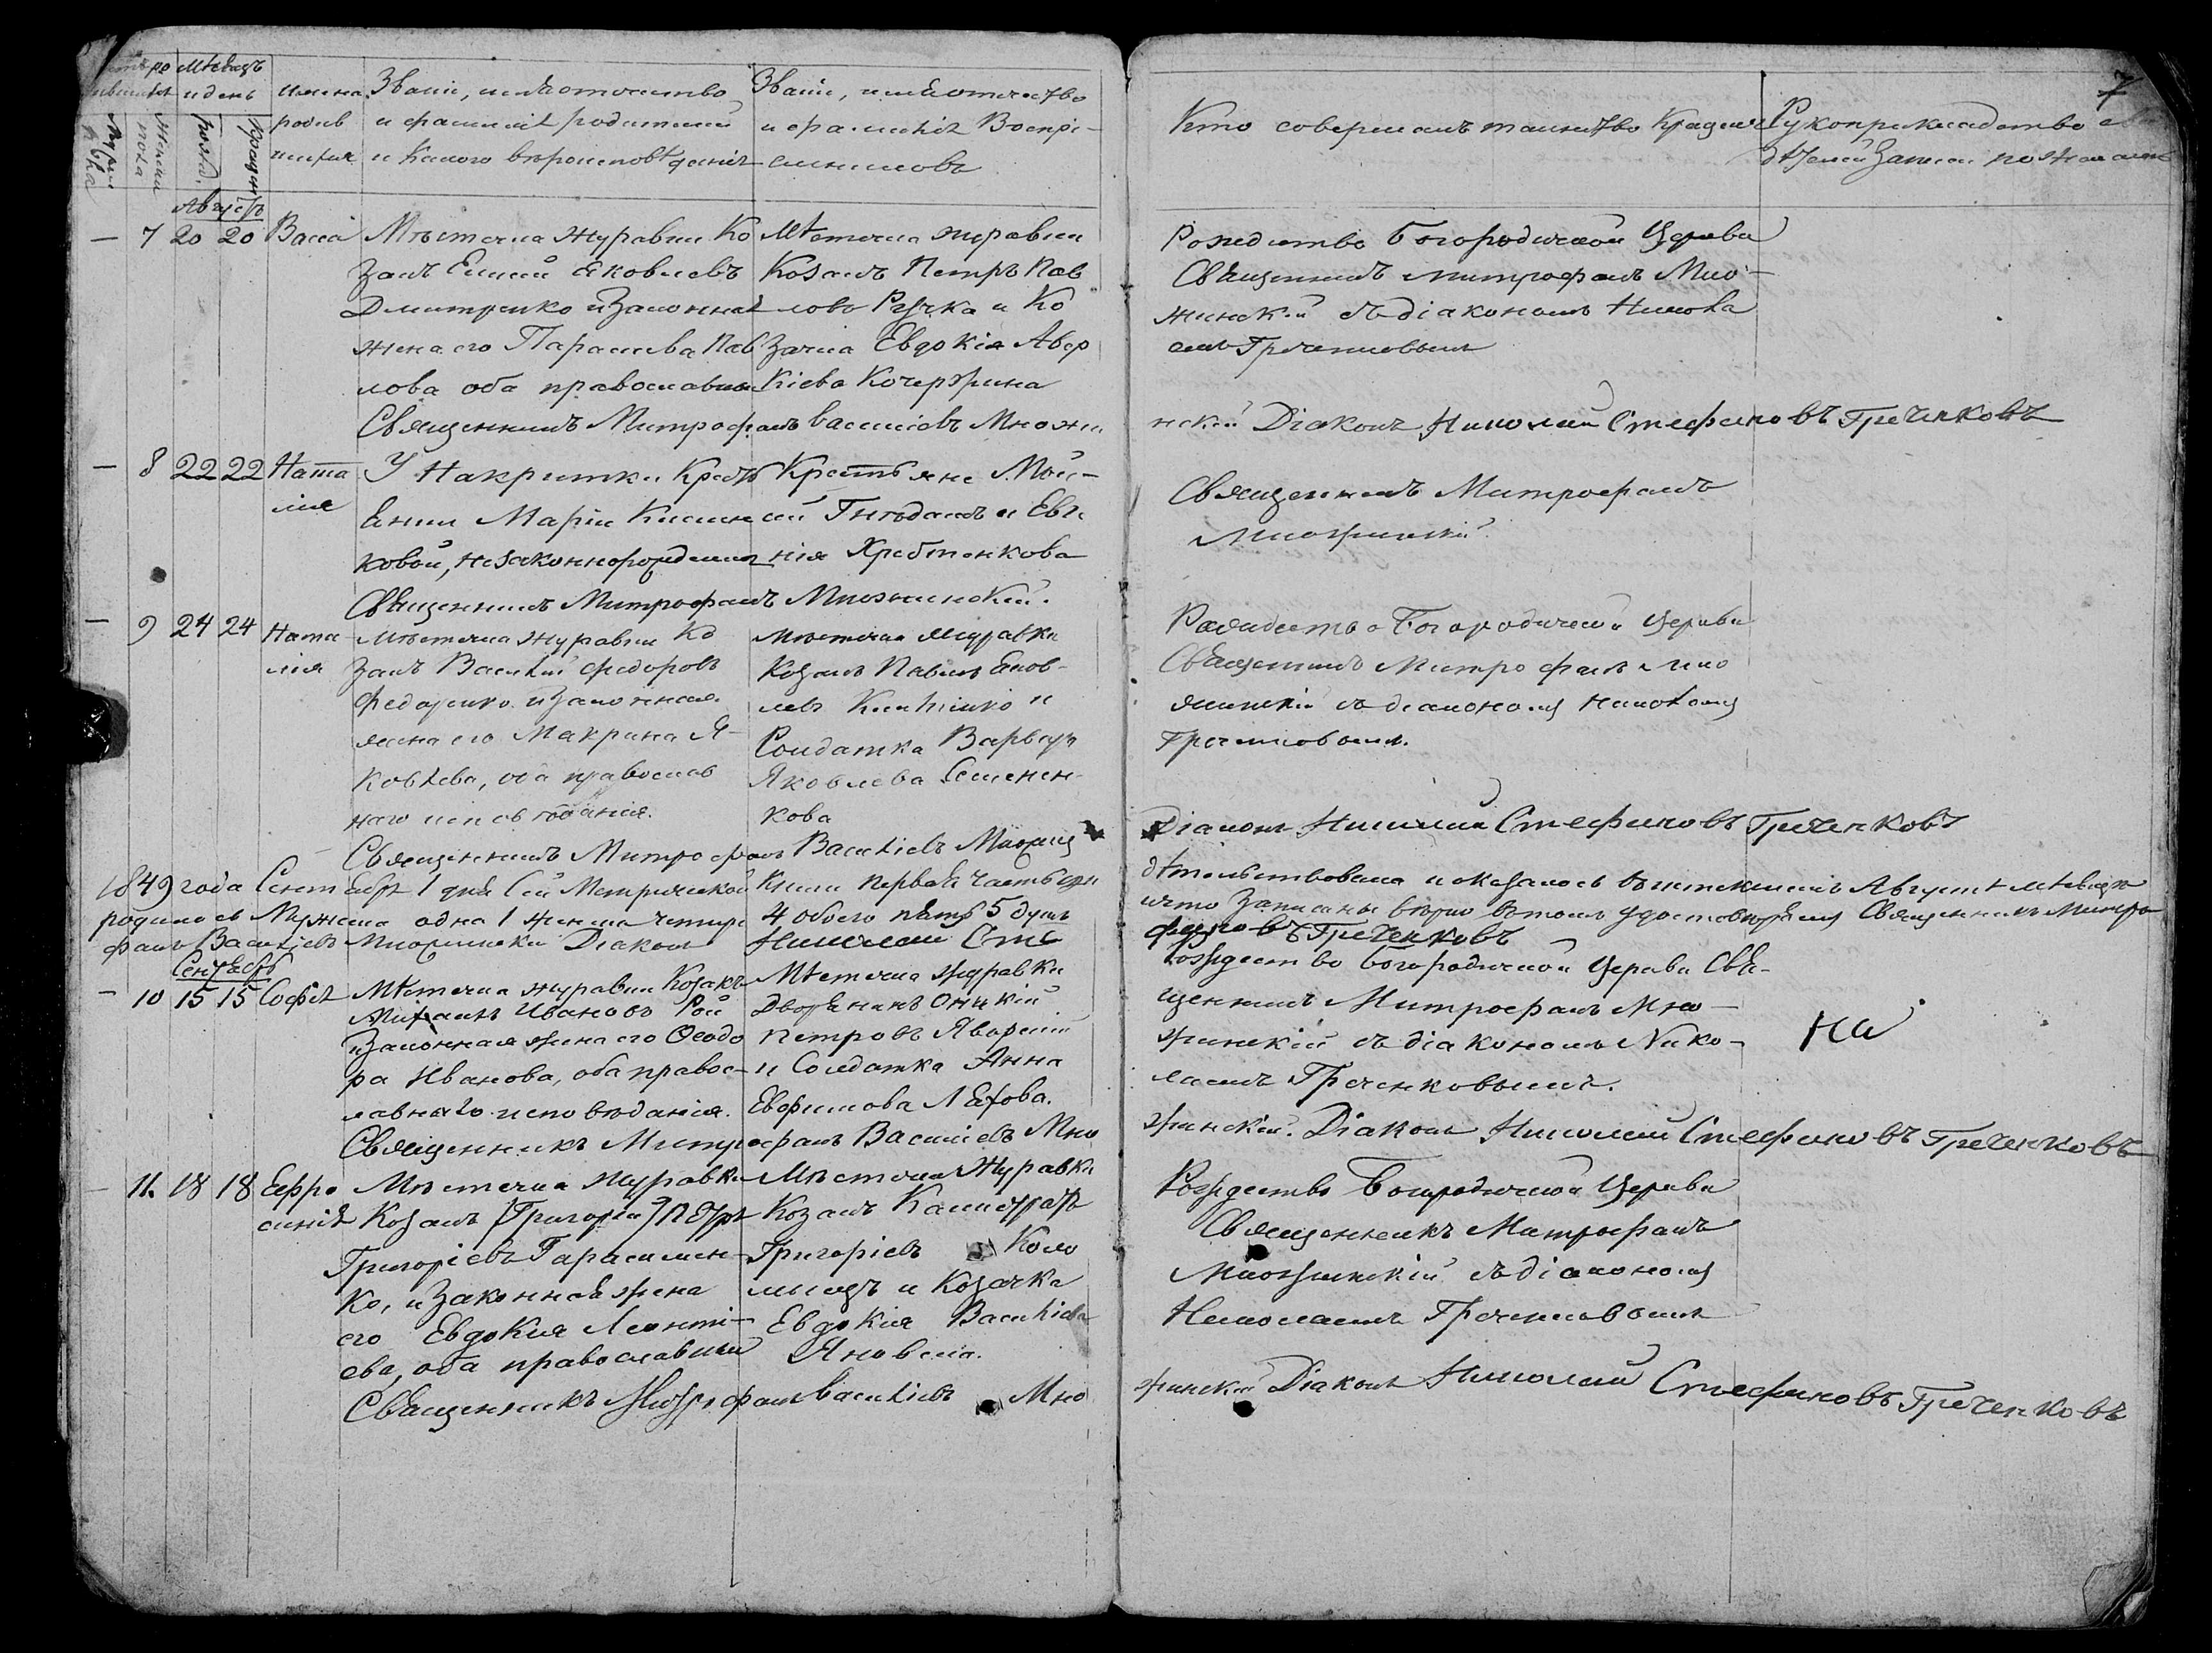 7
Мѣсяцъ
и день
имена
родив
шихся
Званіе, имя отчество
и фамилія родителей
и какого вѣроисповѣданія
Званіе, имя отчество
и фамилія Воспрі-
емниковъ
Кто совершалъ таинство Крещенія
Рукоприкладство
дѣтелей записи по желанію
Мужеска
пола
Женска
пола
рожд.
Крещен
Августъ
— 7 20 20 Васса
Мѣстечка Журавки Ко
закъ Яковлевъ
Дмитренко и Законная
жена его Параскева Пав
лова оба православнаго
Мѣстечка Журавки
Козакъ Петръ Пав
ловъ Ручка и Ко
зачка Евдокія Авер
кіева Кочержина
Рождество Богородичной Церкви
Священникъ Митрофанъ Мно-
жинскій съ діакономъ Никола
емъ Греченковымъ
Священникъ Митрофанъ Василіевъ Множи
нскій Діаконъ Николай Стефановъ Греченковъ
— 8 22 22 Ната
лія
У Накритки Кресть
янки Маріи
ковой, незаконнорожденная
Крестьяне Мои-
сей Гнѣдашъ и Евге
нія Хребтенкова
Священникъ Митрофанъ
Множинскій
Священникъ Митрофанъ Множинскій.
— 9 24 24 Ната
лія
Мѣстечка Журавки Ко
закъ Василій Федоровъ
Федоренко и Законная
жена его Макрина Я-
ковлева, оба православ
наго исповѣданія.
Мѣстечка Журавки
Козакъ Павелъ Яков-
левъ и
Солдатка Варвара
Яковлева Семенен-
кова
Рождество Богородичной Церкви
Священникъ Митрофанъ Мно
жинскій съ діакономъ Николаемъ
Греченковымъ.
Священникъ Митрофанъ Василіевъ Множинс
Діаконъ Николай Стефановъ Греченковъ
1849 года Сентября 1 дня Сей Метрической Книги первая часть
дѣтельствована и оказалось въ истекшемъ Августѣ мѣсяцѣ
родилось Мужеска одна 1 женска четыре 4 обоего пять 5 душъ
и что записаны вѣрно въ томъ удостовѣряемъ Священникъ Митро
фанъ Василіевъ Множинскій Діаконъ Николай Сте
фановъ Греченковъ
Сентябрь
— 10 15 15 Софія
Мѣстечка Журавки Козакъ
Михаилъ Ивановъ Рой
и Законная жена его Феодо
ра Иванова, оба правос-
лавнаго исповѣданія.
Мѣстечка Журавки
Дворянинъ Оникій
Петровъ Яворскій
и Солдатка Анна
Евфимова Ляхова.
Рождество Богородичной Церкви Свя-
щенникъ Митрофанъ Мно-
жинскій съ діакономъ Нико-
лаемъ Греченковымъ.
На
Священникъ Митрофанъ Василіевъ Мно
жинскій. Діаконъ Николай Стефановъ Греченковъ
— 11. 18 18 Евфро
синія
Мѣстечка Журавки
Козакъ [Григорій] Петръ
Григоріевъ Гарасимен-
ко, и Законная жена
его Евдокия Леонті-
ева, оба православныи
Мѣстечка Журавки
Козакъ Калистратъ
Григоріевъ Коло
мыецъ и Козачка
Евдокія Васильева
Яновска.
Рождество Богородичной Церкви
Священникъ Митрофанъ
Множинскій съ діакономъ
Николаемъ Греченковымъ
Священникъ Митрофанъ Василіевъ Мно
жинскій Діаконъ Николай Стефановъ Греченковъ